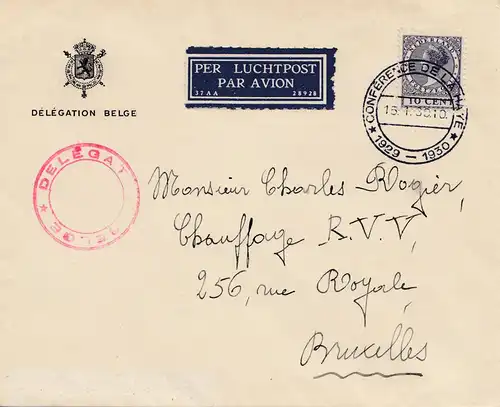 DÉLÉGATION BELGE
PER LUCHTPOST
PAR AVION
37AA 28928
NEDERLAND
10 CENT
CONFÉRENCE DE LA HAYE
15.1.30.10.
★ 1929 - 1930 ★
DÉLÉGAT
BELGE ★
Monsieur Charles Rogier,
Chauffage R.V.V,
256, rue Royale,
Bruxelles